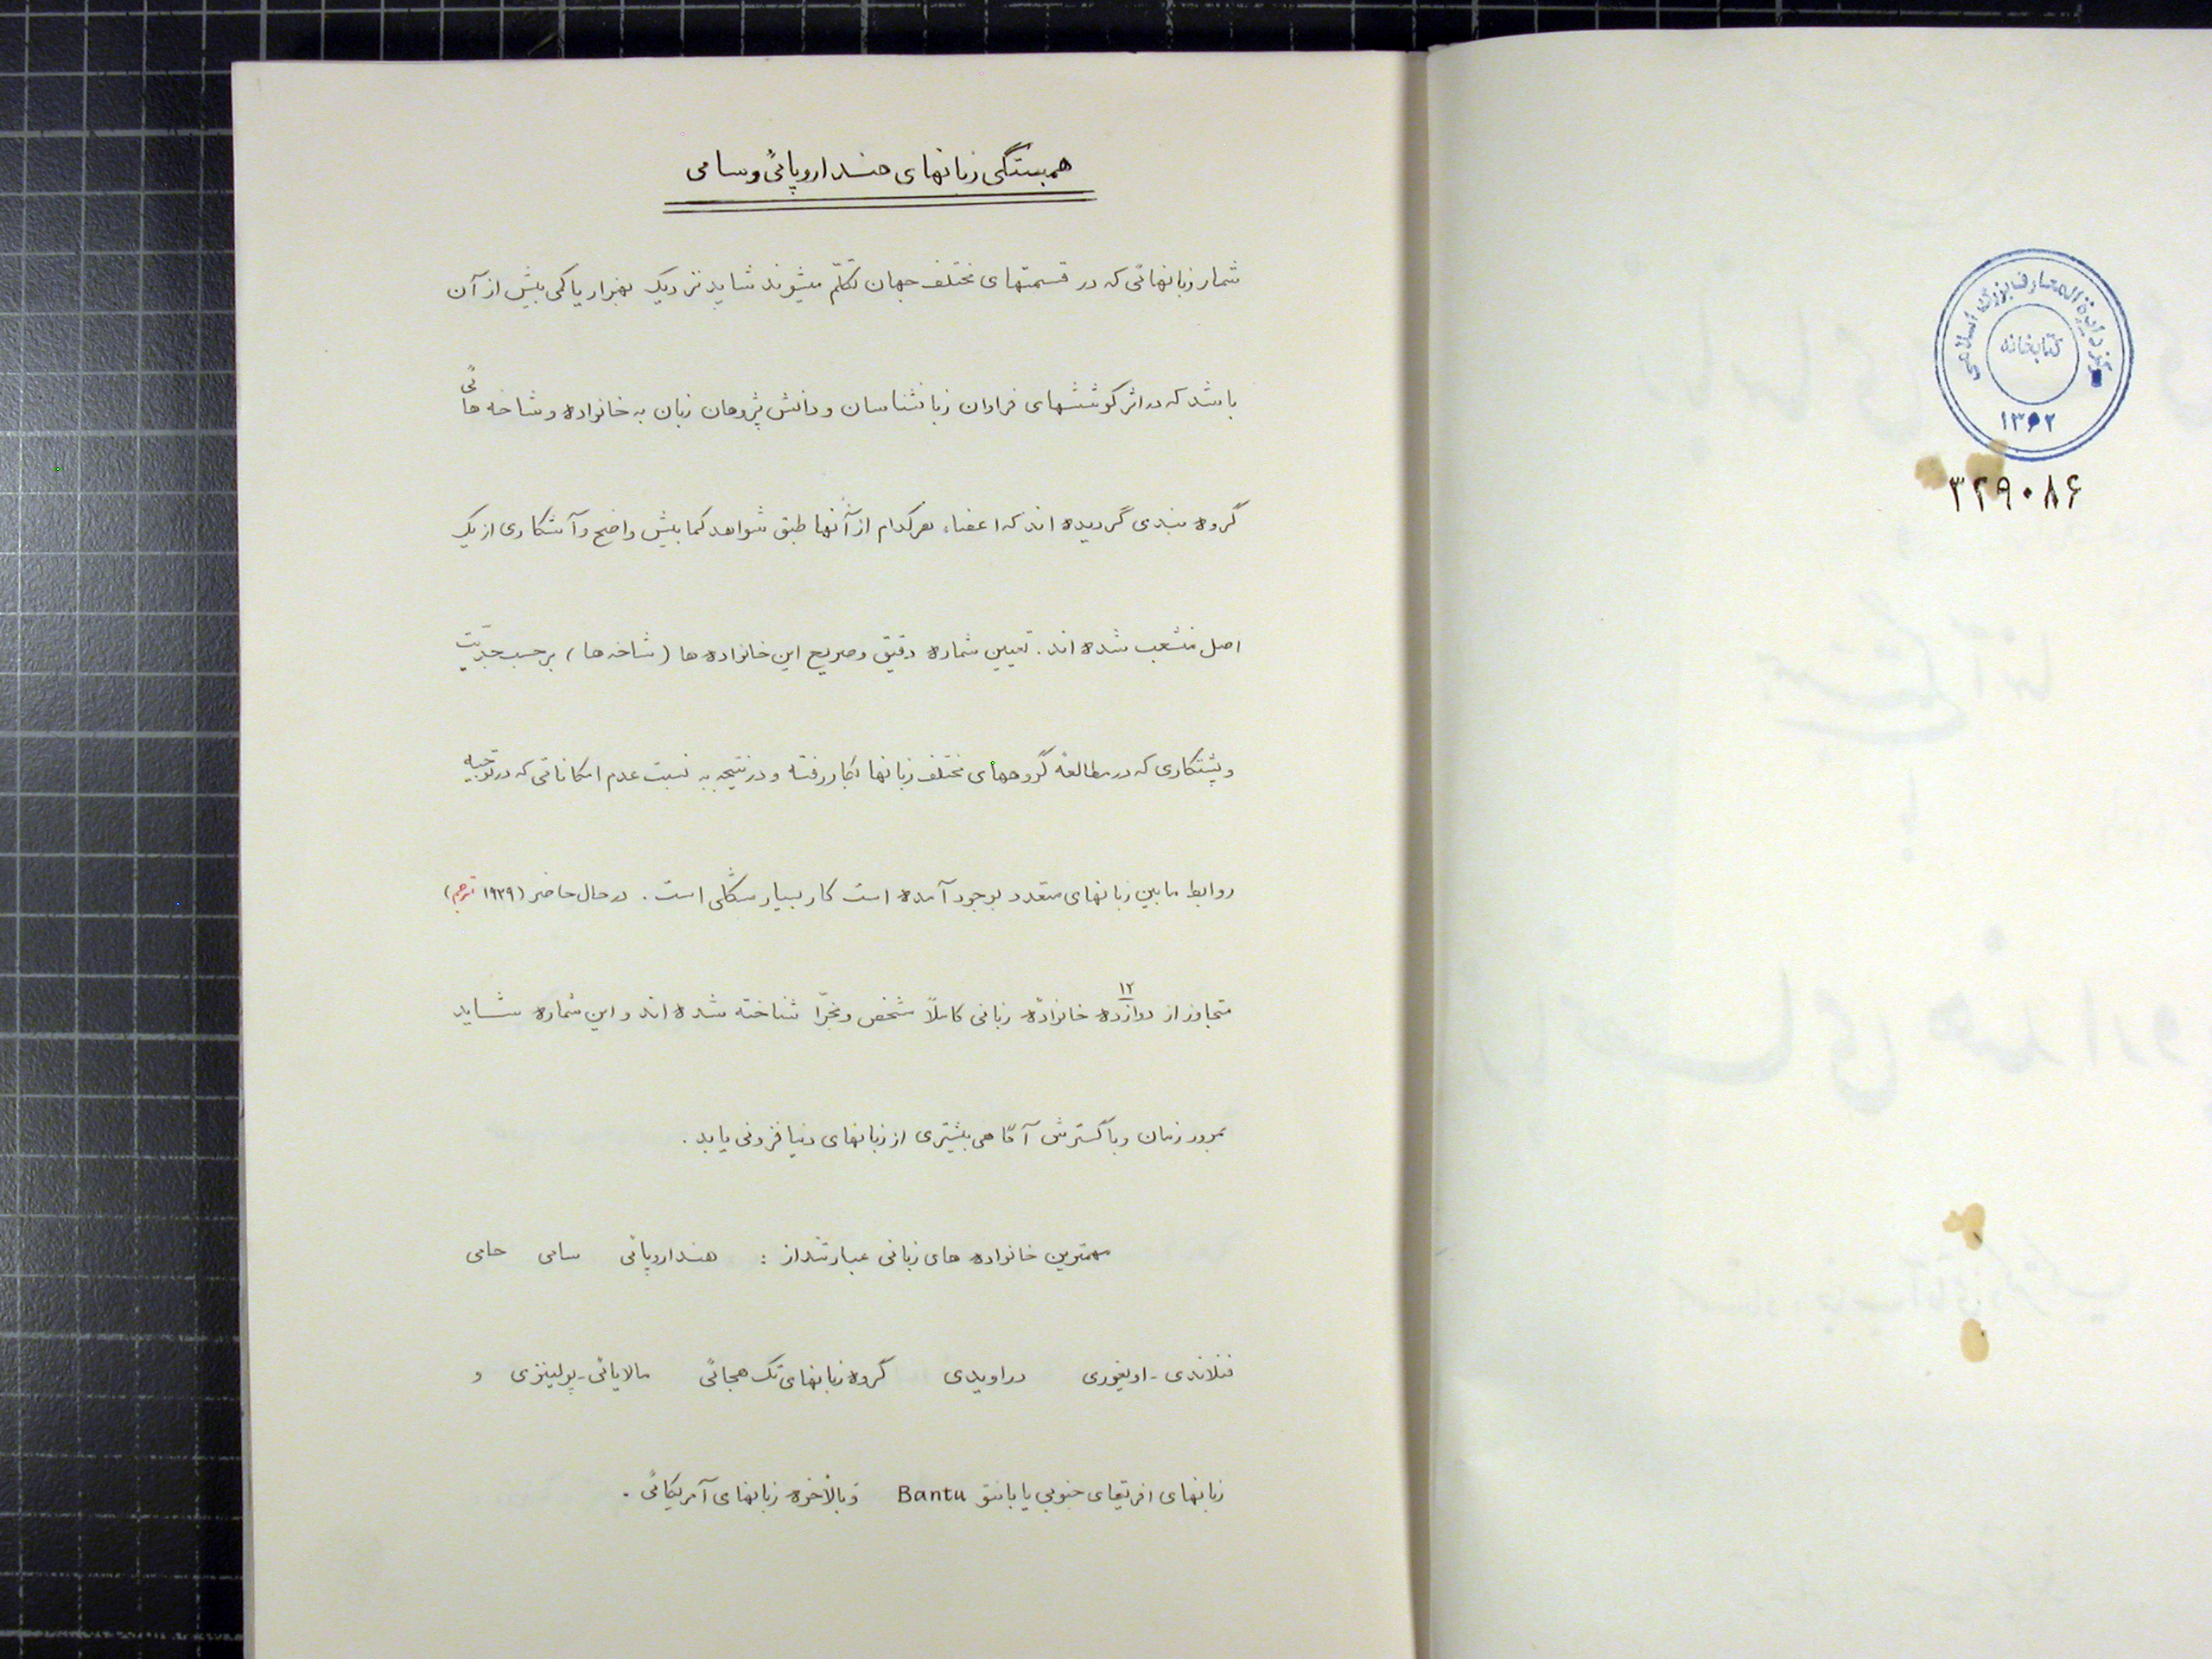 همبستگی زبانهای هنداروپائی و سامی
شمار زبانهائی که در قسمتهای مختلف جهان تکلّم میشوند شاید نزدیک بهزار یا کمی بیش از آن
باشد که در اثر کوششهای فراوان زبانشناسان و دانش پژوهان زبان به خانواده و شاخه هائی
گروه بندی گردیده اند که اعضاء هرکدام از آنها طبق شواهد کمابیش واضح و آشکاری از یک
اصل منشعب شده اند . تعیین شماره دقیق و صریح این خانواده ها ( شاخه ها ) برحسب جدّیّت
و پشتکاری که در مطالعهٔ گروههای مختلف زبانها بکار رفته و در نتیجه به نسبت عدم امکاناتی که در توجیه
روابط مابین زبانهای متعدد بوجود آمده است کار بسیار مشکلی است . در حال حاضر ( ۱۹۳۹ مترجم )
متجاوز از دوازده ۱۲ خانوادهٔ زبانی کاملاً مشخص و مجزّا شناخته شده اند و این شماره شاید
بمرور زمان و با گسترش آگاهی بیشتری از زبانهای دنیا فزونی یابد .
مهمترین خانواده های زبانی عبارتنداز : هنداروپائی سامی حامی
فنلاندی - اویغوری دراویدی گروه زبانهای تک هجائی مالایائی - پولینزی و
زبانهای افریقای جنوبی یا بانتو Bantu و بالأخره زبانهای آمریکائی .
مرکز دایرة المعارف بزرگ اسلامی
کتابخانه
۱۳۶۲
۳۲۹۰۸۶